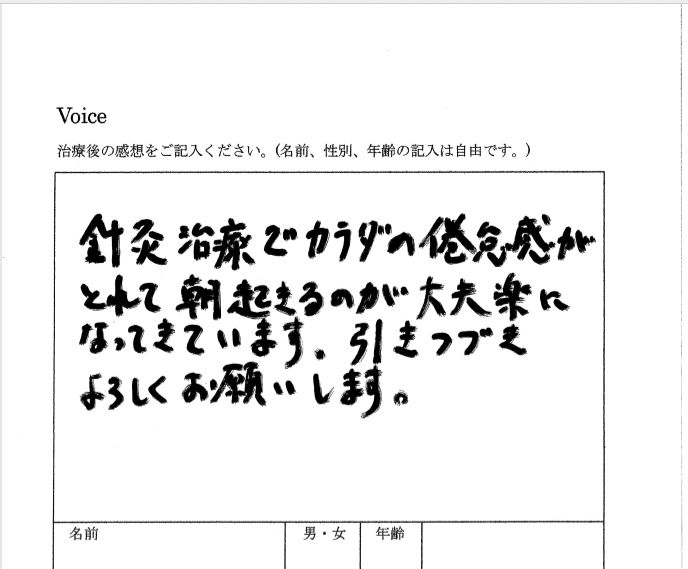 Voice
治療後の感想をご記入ください。(名前、性別、年齢の記入は自由です。)
針灸治療でカラダの倦怠感が
とれて朝起きるのが大夫楽に
なってきています。引きつづき
よろしくお願いします。
名前 男・女 年齢